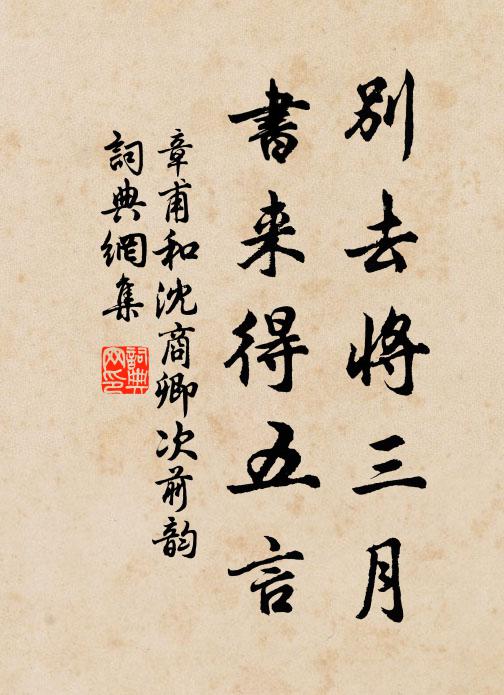 別去將三月
書来得五言
章甫和沈商卿次前韵
詞典網集
詞典網印